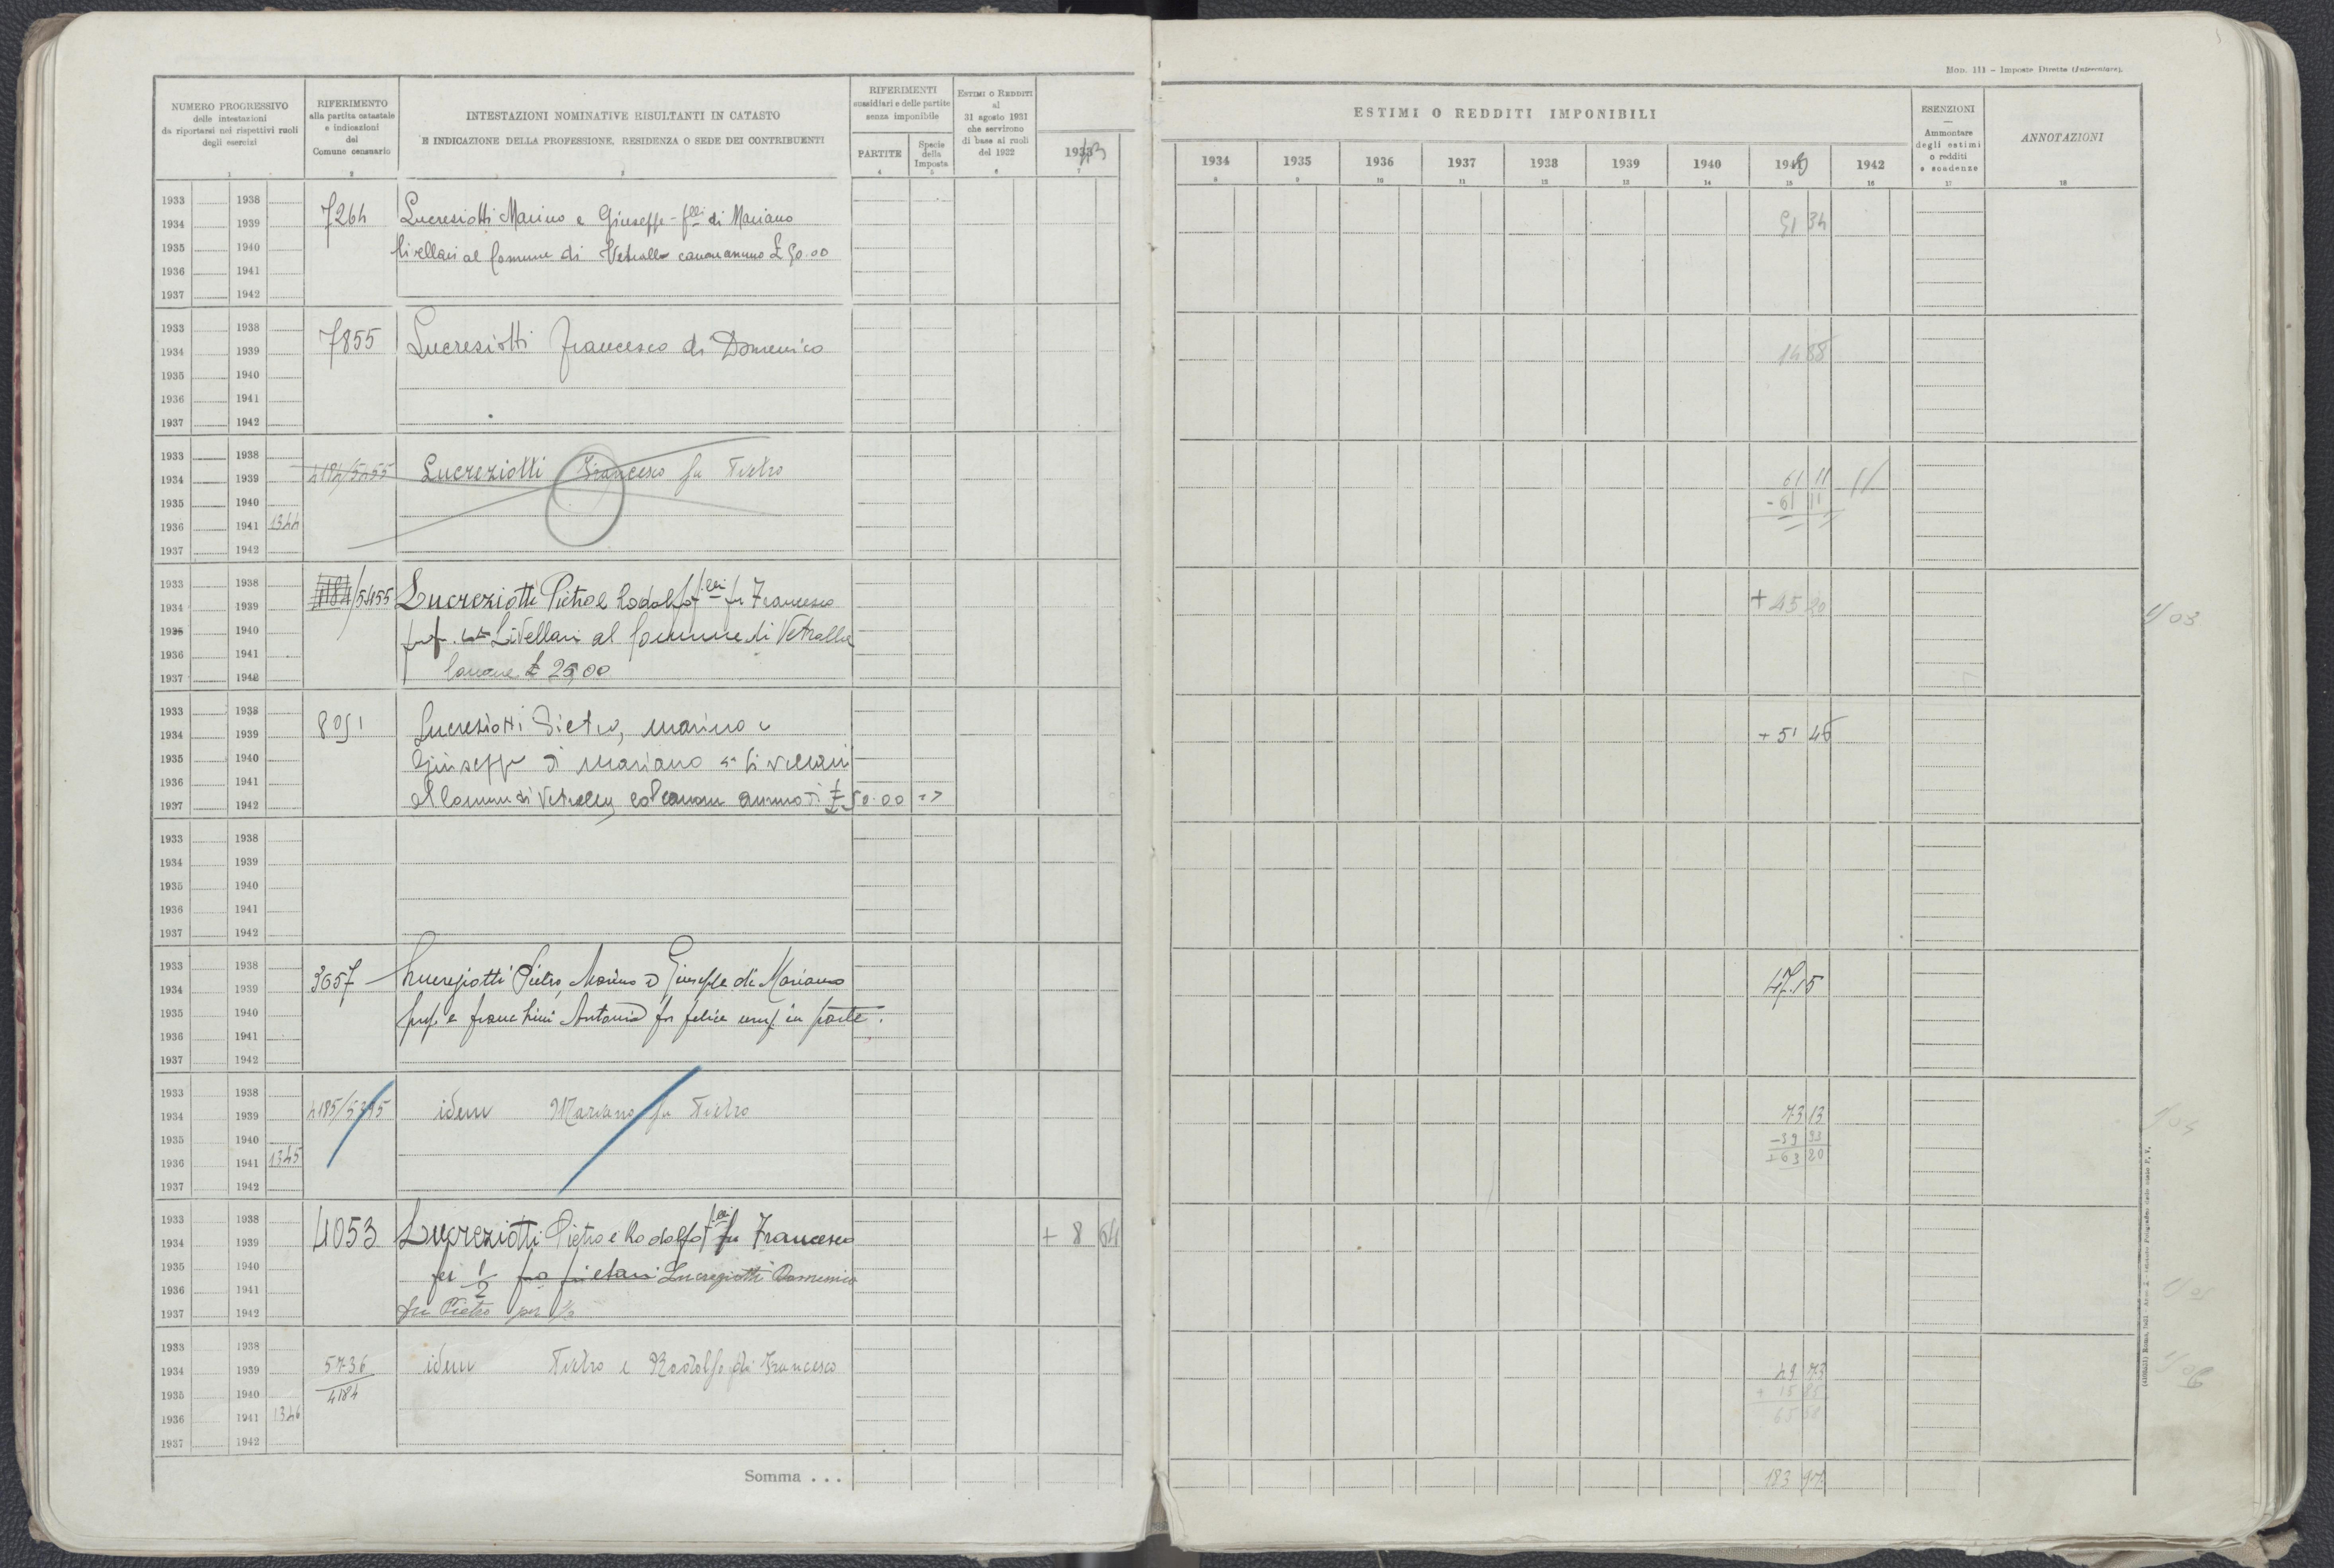 Mod. 111 – Imposte Dirette (Intercalare).
NUMERO PROGRESSIVO
delle intestazioni
da riportarsi nei rispettivi ruoli
degli esercizi
1
RIFERIMENTO
alla partita catastale
e indicazioni
del
Comune censuario
2
INTESTAZIONI NOMINATIVE RISULTANTI IN CATASTO
E INDICAZIONE DELLA PROFESSIONE, RESIDENZA O SEDE DEI CONTRIBUENTI
3
RIFERIMENTI
sussidiari e delle partite
senza imponibile
PARTITE
4
Specie
della
Imposta
5
ESTIMI O REDDITI
al
31 agosto 1931
che servirono
di base ai ruoli
del 1932
6
1933 43
7
ESTIMI O REDDITI IMPONIBILI
1934 1935 1936 1937 1938 1939 1940 1941 1942
8 9 10 11 12 13 14 15 16
ESENZIONI
—
Ammontare
degli estimi
o redditi
e scadenze
17
ANNOTAZIONI
18
1933 1938
1934 1939
1935 1940
1936 1941
1937 1942
7264 Lucresiotti Marino e Giuseppe - flli di Mariano
livellari al Comune di Vetralla canone annuo £ 50.00
51 34
1933 1938
1934 1939
1935 1940
1936 1941
1937 1942
7855 Lucresiotti Francesco di Domenico
14 88
1933 1938
1934 1939
1935 1940
1936 1941 1344
1937 1942
4184/5455 Lucreziotti Francesco fu Pietro
61 11
- 61 11
1933 1938
1934 1939
1935 1940
1936 1941
1937 1942
4184/5455 Lucreziotti Pietro e Rodolfo flli fu Francesco
Livellari al Comune di Vetralla
Canone £ 25,00
+ 45 20
1/03
1933 1938
1934 1939
1935 1940
1936 1941
1937 1942
8051 Lucresiotti Pietro, Marino e
Giuseppe di Mariano livellari
al Comune di Vetralla col canone annuo di £ 50.00
+ 51 46
1933 1938
1934 1939
1935 1940
1936 1941
1937 1942
1933 1938
1934 1939
1935 1940
1936 1941
1937 1942
3657 – Lucreziotti Pietro, Marino e Giuseppe di Mariano
prop. e Franchini Antonia fu Felice usuf. in parte.
47.15
1933 1938
1934 1939
1935 1940
1936 1941 1345
1937 1942
4185/5395 idem Mariano fu Pietro
73 13
- 39 33
+ 63 20
1933 1938
1934 1939
1935 1940
1936 1941
1937 1942
4053 Lucreziotti Pietro e Rodolfo flli fu Francesco
per 1/2 proprietari Lucreziotti Domenico
fu Pietro per 1/2
+ 8 64
1933 1938
1934 1939
1935 1940
1936 1941 1346
1937 1942
5736
4184
idem Pietro e Rodolfo di Francesco
49 73
+ 15 85
65 58
Somma . . .
183 97